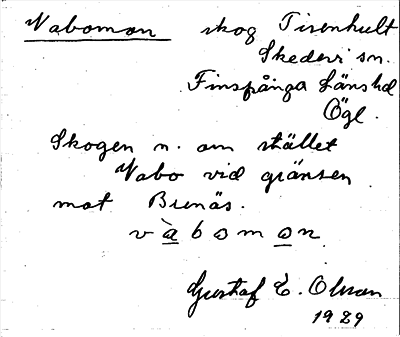 Vabomon skog Tisenhult
Skedevi sn.
Finspånga Länshd
Ögl.
Skogen n. om stället
Vabo vid gränsen
mot Brenäs.
vàbomon
Gustaf E. Olsson
1929